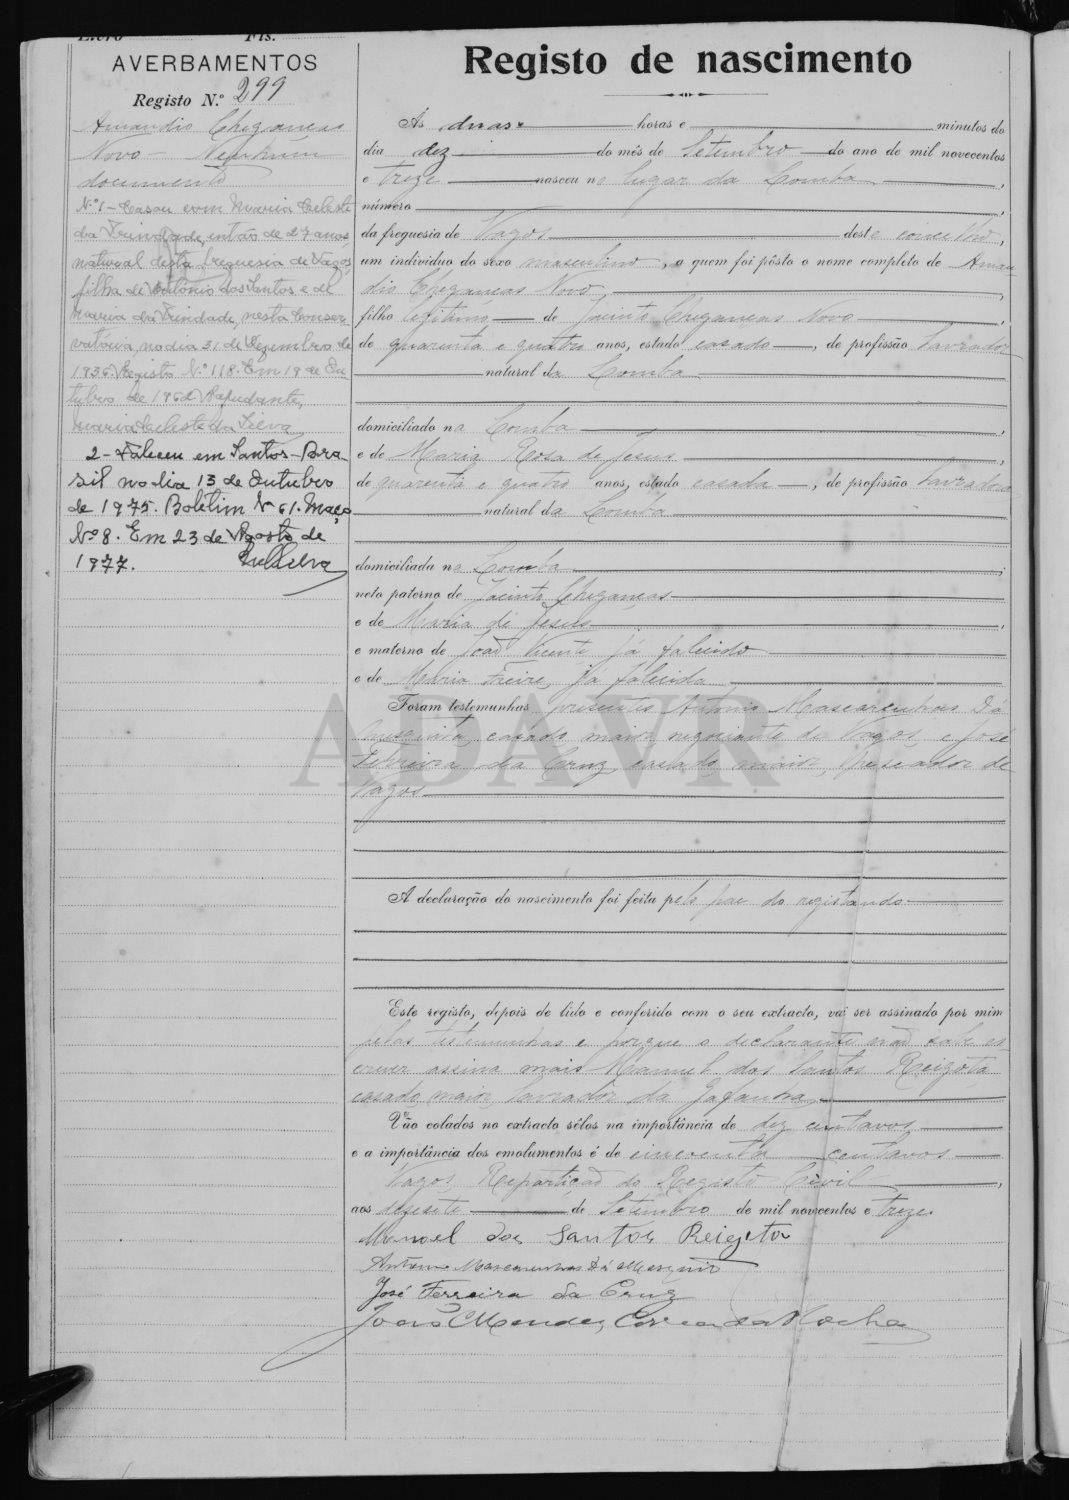 Livro Fls.
AVERBAMENTOS
Registo N.º 299
Amandio Chegancas
Novo - Nenhum
documento
N.º 1 - Casou com Maria Celeste
da Trindade, então de 27 anos
natural desta freguesia de Vagos,
filha de António dos Santos e de
Maria da Trindade, nesta Conser
vatória, no dia 31 de Dezembro de
1936. Registo N.º 118. Em 19 de Ou
tubro de 196 Ajudante,
Maria Celeste da Silva
2 - Faleceu em Santos - Bra
sil no dia 13 de Outubro
de 1975. Boletim Nº 61. Maço
Nº 8. Em 23 de Agosto de
1977.
Registo de nascimento
Ás duas horas e minutos do
dia dez do mês de Setembro do ano de mil novecentos
e treze nasceu no lugar da Lomba,
número
da freguesia de Vagos deste concelho,
um individuo do sexo masculino, a quem foi pôsto o nome completo de Aman
dio Chegancas Novo,
filho legitimo de Jacinto Chegancas Novo,
de quarenta e quatro anos, estado casado, de profissão lavrador
natural da Lomba
domiciliado na Lomba,
e de Maria Rosa de Jesus,
de quarenta e quatro anos, estado casada, de profissão lavradora
natural da Lomba
domiciliada na Lomba;
neto paterno de Jacinto Chegancas
e de Maria de Jesus,
e materno de João Vicente, já falecido
e de Maria Freire, já falecida
Foram testemunhas presentes Antonio Mascarenhas Dá
Mesquita, casado, maior, negociante de Vagos, e José
Ferreira da Cruz, casado, maior, pescador de
Vagos
ADAVR
A declaração do nascimento foi feita pelo pae do registando
Este registo, depois de lido e conferido com o seu extracto, vai ser assinado por mim
pelas testemunhas e porque o declarante não sabe es
crever assina mais Manuel dos Santos Reigota
casado, maior, lavrador da Gafanha,
Vão colados no extracto sêlos na importância de dez centavos
e a importância dos emolumentos é de cincoenta centavos
Vagos, Repartição do Registo Civil,
aos desesete de Setembro de mil novecentos e treze.
Manoel dos Santos Reigota
Antonio Mascarenhas Dá Mesquita
José Ferreira da Cruz
João Mendes Correia da Rocha